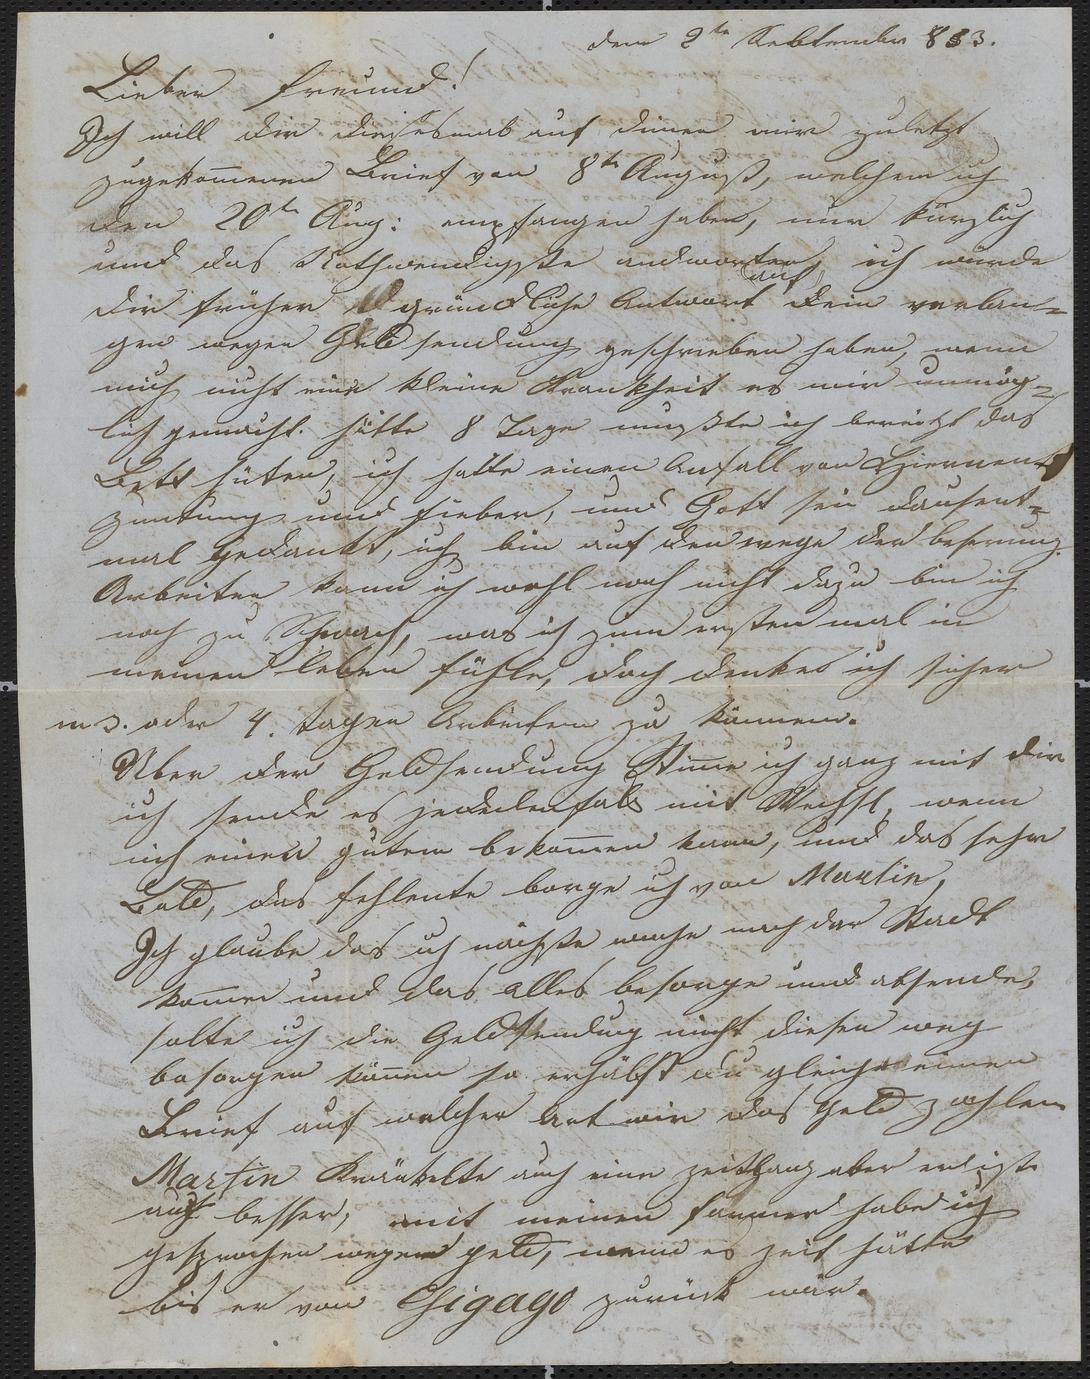 den 2te September 853.
Lieber Freund!
Ich will dir diesesmal auf deinen mir zuletzt
zugekom̅enen Brief von 8te August, welchen ich
den 20te Aug: empfangen habe, nur kürzlich
und das Nothwendigste andworten, ich würde
dir früher gründliche Antwort auf dein verlan=
gen wegen Geldsendung geschrieben haben, wenn
mich nicht eine kleine Krankheit es mir unmög=
lich gemacht hätte 8 Tage mußte ich bereitzt das
Bett hüten, ich hatte einen Anfall von Hiernent
zuntung und Fieber, und Gott sei dausent=
mal gedankt, ich bin auf den wege der beserung.
Arbeiten kann ich wohl noch nicht dazu bin ich
noch zu Schwach, was ich zum ersten mal in
meinen leben fühle, doch denke ich sicher
in 3. oder 4. tagen Arbeiten zu können.
Über der Geldsendung Stim̅e ich ganz mit dir
ich sende es jedenfals mit Wechsl, wenn
ich einen guten bekom̅en kann, und das sehr
Bald, das fehlente borge ich von Martin,
Ich glaube das ich nächste woche nach der Stadt
kom̅e und das alles besorge und absende,
solte ich die Geldsendung nicht diesen weg
besorgen kön̅en so erhälst du gleich einen
Brief auf welcher art wir das Geld zahlen
Martin Kränkelte auch eine zeitlang aber er ist
auch besser, mit meinen farmer habe ich
gesprochen wegen geld, wenn es zeit hätte
bis er von Chigago zurück wär.